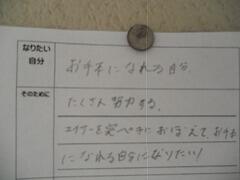 なりたい
自分
お手本になれる自分.
そのために
たくさん努力する.
エイサーを完ぺきにおぼえてお手本
になれる自分になりたい!